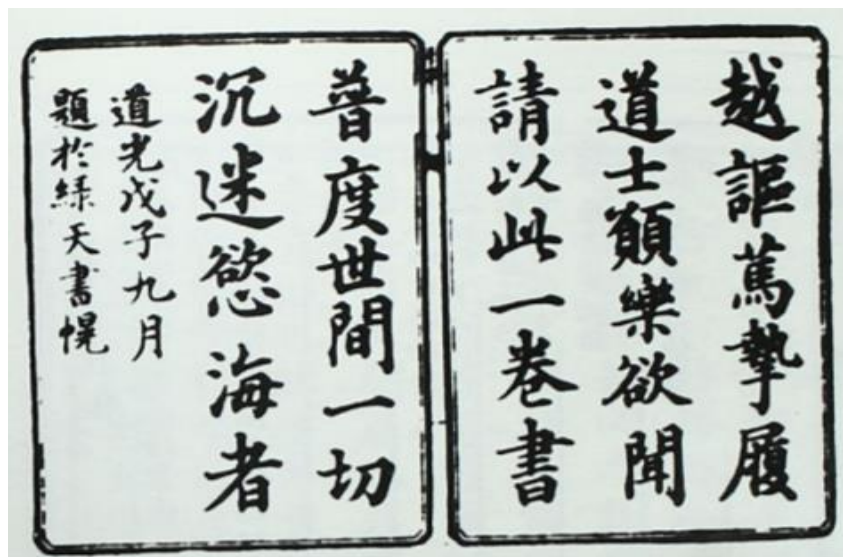 越謳篤摯履
道士顛樂欲聞
請以此一卷書
普度世間一切
沉迷慾海者
道光戊子九月
題於綠天書幌